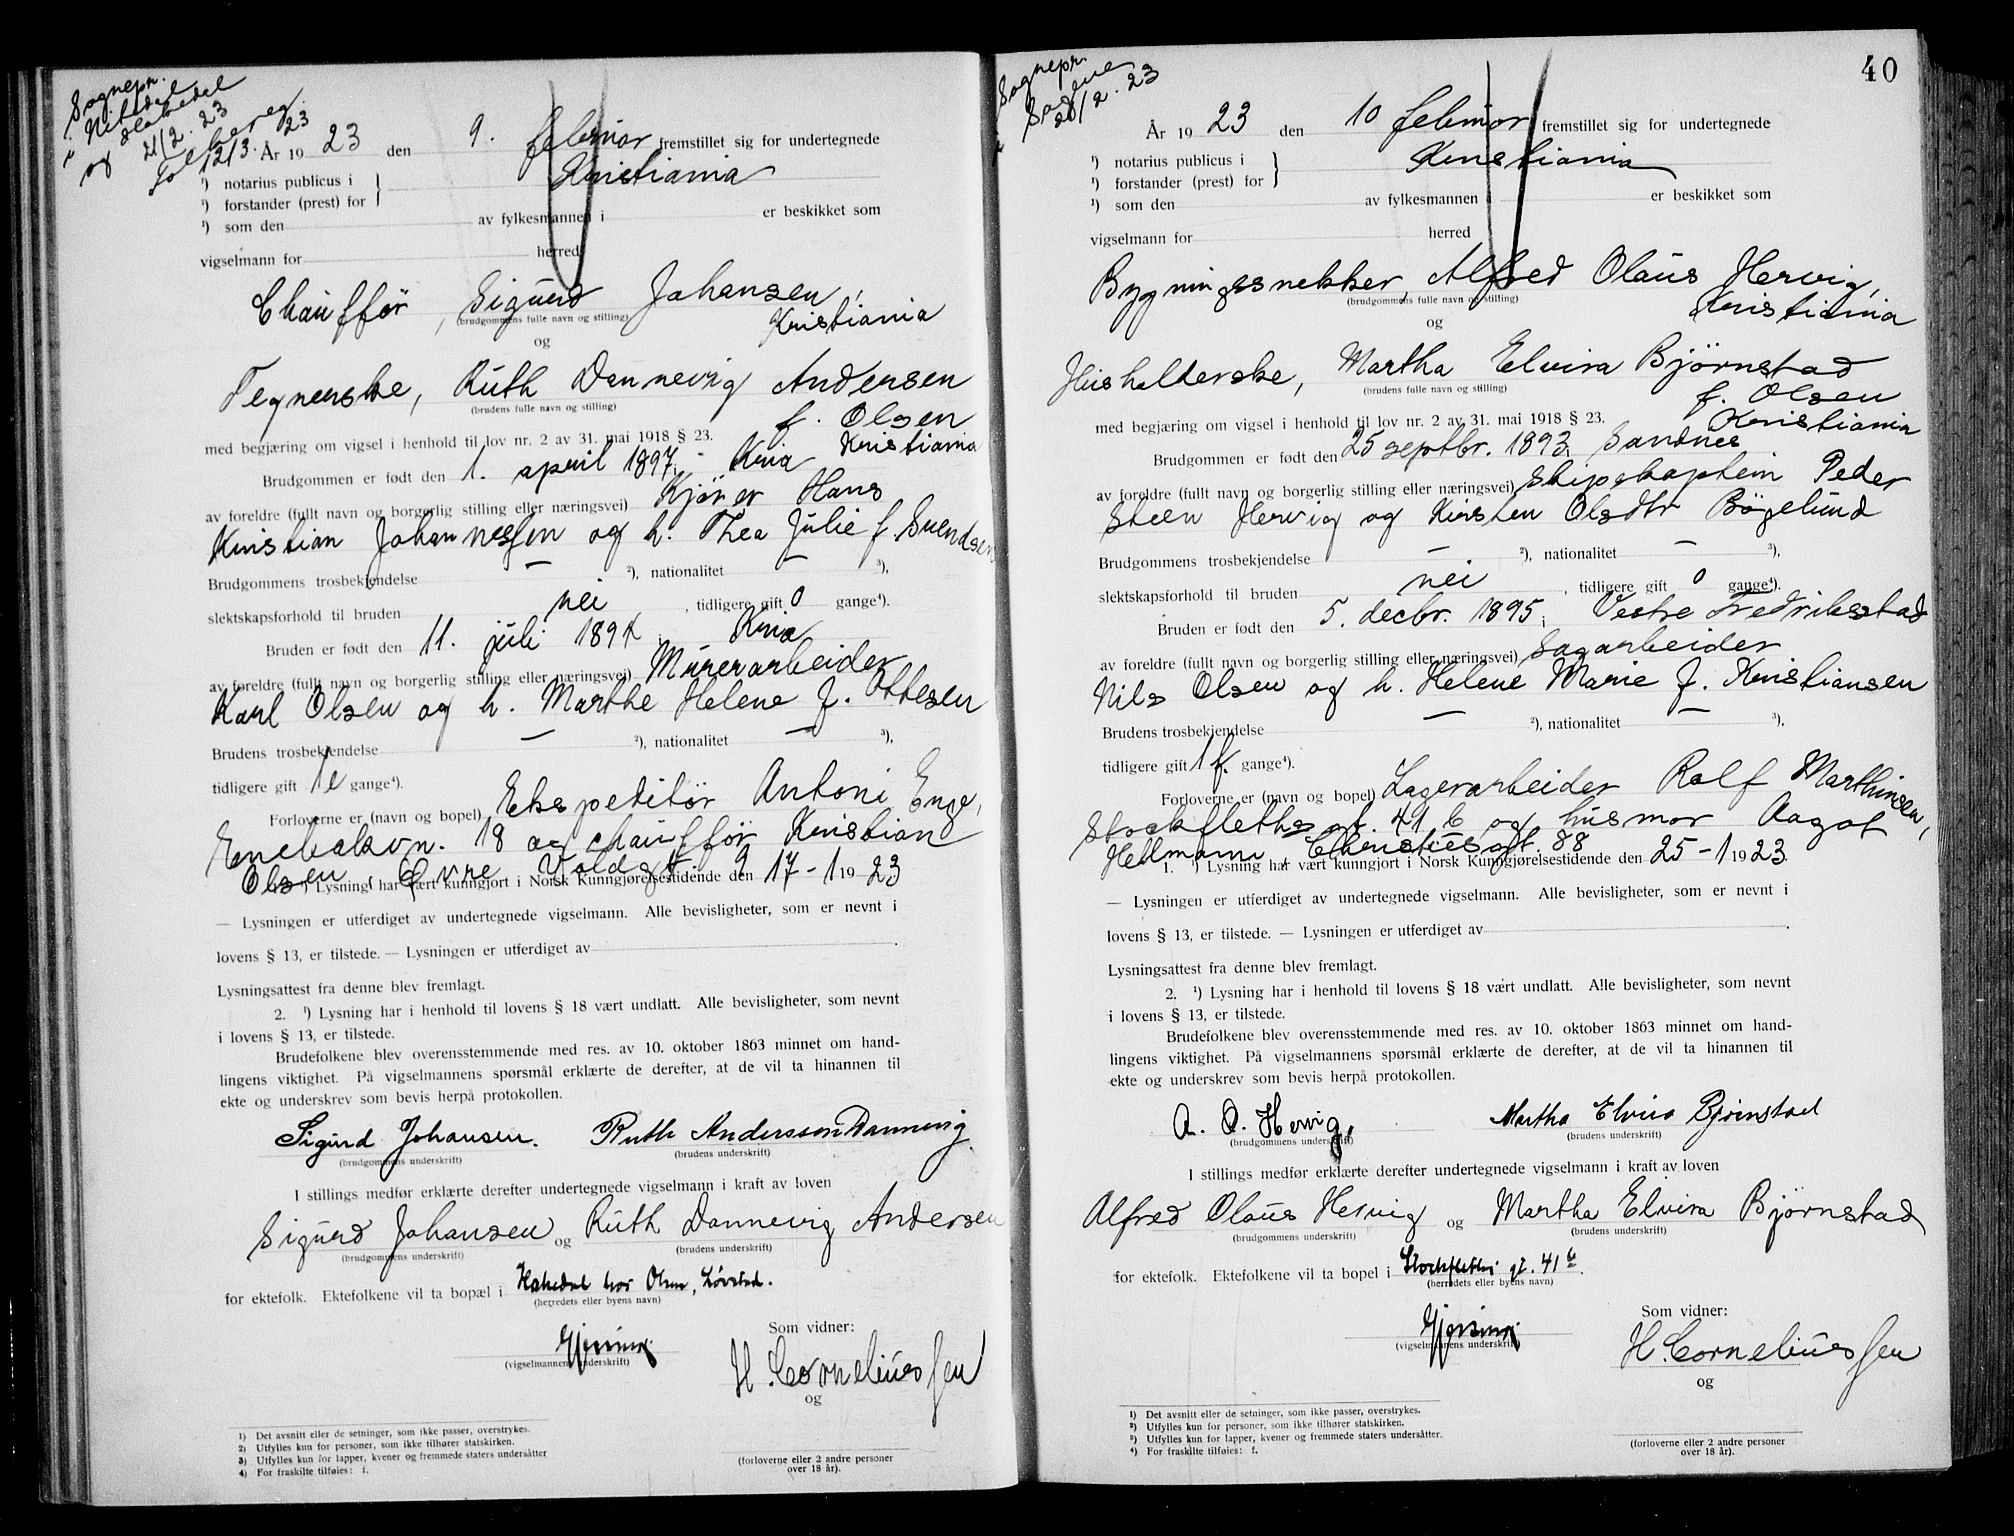 Sognepr.
i Nittedal
og Hakedal
21/2. 23
Folkereg.
12/3. 23
År 19 23 den 9. februar fremstillet sig for undertegnede
¹) notarius publicus i Kristiania
¹) forstander (prest) for
¹) som den av fylkesmannen i er beskikket som
vigselmann for herred
Chauffør, Sigurd Johansen,
(brudgommens fulle navn og stilling) Kristiania
og
Tegnerske, Ruth Dannevig Andersen
(brudens fulle navn og stilling) f. Olsen
med begjæring om vigsel i henhold til lov nr. 2 av 31. mai 1918 § 23. Kristiania
Brudgommen er født den 1. april 1897, Kria
av foreldre (fullt navn og borgerlig stilling eller næringsvei) Kjører Hans
Kristian Johannessen og h. Thea Julie f. Svendsen
Brudgommens trosbekjendelse — ²), nationalitet — ³),
slektskapsforhold til bruden nei, tidligere gift 0 gange⁴).
Bruden er født den 11. juli 189 ; Kria
av foreldre (fullt navn og borgerlig stilling eller næringsvei) Murerarbeider
Karl Olsen og h. Marthe Helene f. Ottesen
Brudens trosbekjendelse — ²), nationalitet — ³),
tidligere gift 1e gange⁴).
Forloverne er (navn og bopel) Ekspeditør Antoni Enge,
Enebakvn. 18 og chauffør Kristian
Olsen, Øvre Voldgt. 9
1. ¹) Lysning har vært kunngjort i Norsk Kunngjørelsestidende den 17 - 1 19 23
— Lysningen er utferdiget av undertegnede vigselmann. Alle bevisligheter, som er nevnt i
lovens § 13, er tilstede. — Lysningen er utferdiget av .
Lysningsattest fra denne blev fremlagt.
2. ¹) Lysning har i henhold til lovens § 18 vært undlatt. Alle bevisligheter, som nevnt
i lovens § 13, er tilstede.
Brudefolkene blev overensstemmende med res. av 10. oktober 1863 minnet om hand-
lingens viktighet. På vigselmannens spørsmål erklærte de derefter, at de vil ta hinannen til
ekte og underskrev som bevis herpå protokollen.
Sigurd Johansen. Ruth Andersson Dannevig
(brudgommens underskrift) (brudens underskrift)
I stillings medfør erklærte derefter undertegnede vigselmann i kraft av loven
Sigurd Johansen og Ruth Dannevig Andersen
(brudgommens underskrift) (brudens underskrift)
for ektefolk. Ektefolkene vil ta bopæl i Hakedal hos Olsen, Løvstad.
(herredets eller byens navn)
Som vidner:
Gjessing
(vigselmannens underskrift) H. Corneliussen
og
¹) Det avsnitt eller de setninger, som ikke passer, overstrykes.
²) Utfylles kun for personer, som ikke tilhører statskirken.
³) Utfylles kun for lapper, kvener og fremmede staters undersåtter
⁴) For fraskilte tilføies: f.
(forloverne eller 2 andre personer
over 18 år).
40
Sognepr.
i Sagene
20/2. 23
År 19 23 den 10 februar fremstillet sig for undertegnede
¹) notarius publicus i Kristiania
¹) forstander (prest) for
¹) som den av fylkesmannen i er beskikket som
vigselmann for herred
Bygningssnekker, Alfred Olaus Hervig,
(brudgommens fulle navn og stilling) Kristiania
og
Husholderske, Martha Elvira Bjørnstad
(brudens fulle navn og stilling) f. Olsen
med begjæring om vigsel i henhold til lov nr. 2 av 31. mai 1918 § 23. Kristiania
Brudgommen er født den 25 septbr. 1893; Sandnes
av foreldre (fullt navn og borgerlig stilling eller næringsvei) Skipskaptein Peder
Steen Hervig og Kirsten Olsdtr Bøgelund
Brudgommens trosbekjendelse — ²), nationalitet — ³),
slektskapsforhold til bruden nei, tidligere gift 0 gange⁴).
Bruden er født den 5. decbr. 1895; Vestre Fredrikstad
av foreldre (fullt navn og borgerlig stilling eller næringsvei) Sagarbeider
Nils Olsen og h. Helene Marie f. Kristiansen
Brudens trosbekjendelse — ²), nationalitet — ³),
tidligere gift 1 f. gange⁴).
Forloverne er (navn og bopel) Lagerarbeider Rolf Marthinsen,
Stockfleths gt. 41 b og husmor Aagot
Hellmann, gt. 88
1. ¹) Lysning har vært kunngjort i Norsk Kunngjørelsestidende den 25 - 1 19 23
— Lysningen er utferdiget av undertegnede vigselmann. Alle bevisligheter, som er nevnt i
lovens § 13, er tilstede. — Lysningen er utferdiget av .
Lysningsattest fra denne blev fremlagt.
2. ¹) Lysning har i henhold til lovens § 18 vært undlatt. Alle bevisligheter, som nevnt
i lovens § 13, er tilstede.
Brudefolkene blev overensstemmende med res. av 10. oktober 1863 minnet om hand-
lingens viktighet. På vigselmannens spørsmål erklærte de derefter, at de vil ta hinannen til
ekte og underskrev som bevis herpå protokollen.
A. O. Hervig, Martha Elvira Bjørnstad
(brudgommens underskrift) (brudens underskrift)
I stillings medfør erklærte derefter undertegnede vigselmann i kraft av loven
Alfred Olaus Hervig og Martha Elvira Bjørnstad
(brudgommens underskrift) (brudens underskrift)
for ektefolk. Ektefolkene vil ta bopel i Stockfleths gt. 41 b.
(herredets eller byens navn)
Som vidner:
Gjessing
(vigselmannens underskrift) H. Corneliussen
og
¹) Det avsnitt eller de setninger, som ikke passer, overstrykes.
²) Utfylles kun for personer, som ikke tilhører statskirken.
³) Utfylles kun for lapper, kvener og fremmede staters undersåtter.
⁴) For fraskilte tilføies: f.
(forloverne eller 2 andre personer
over 18 år).